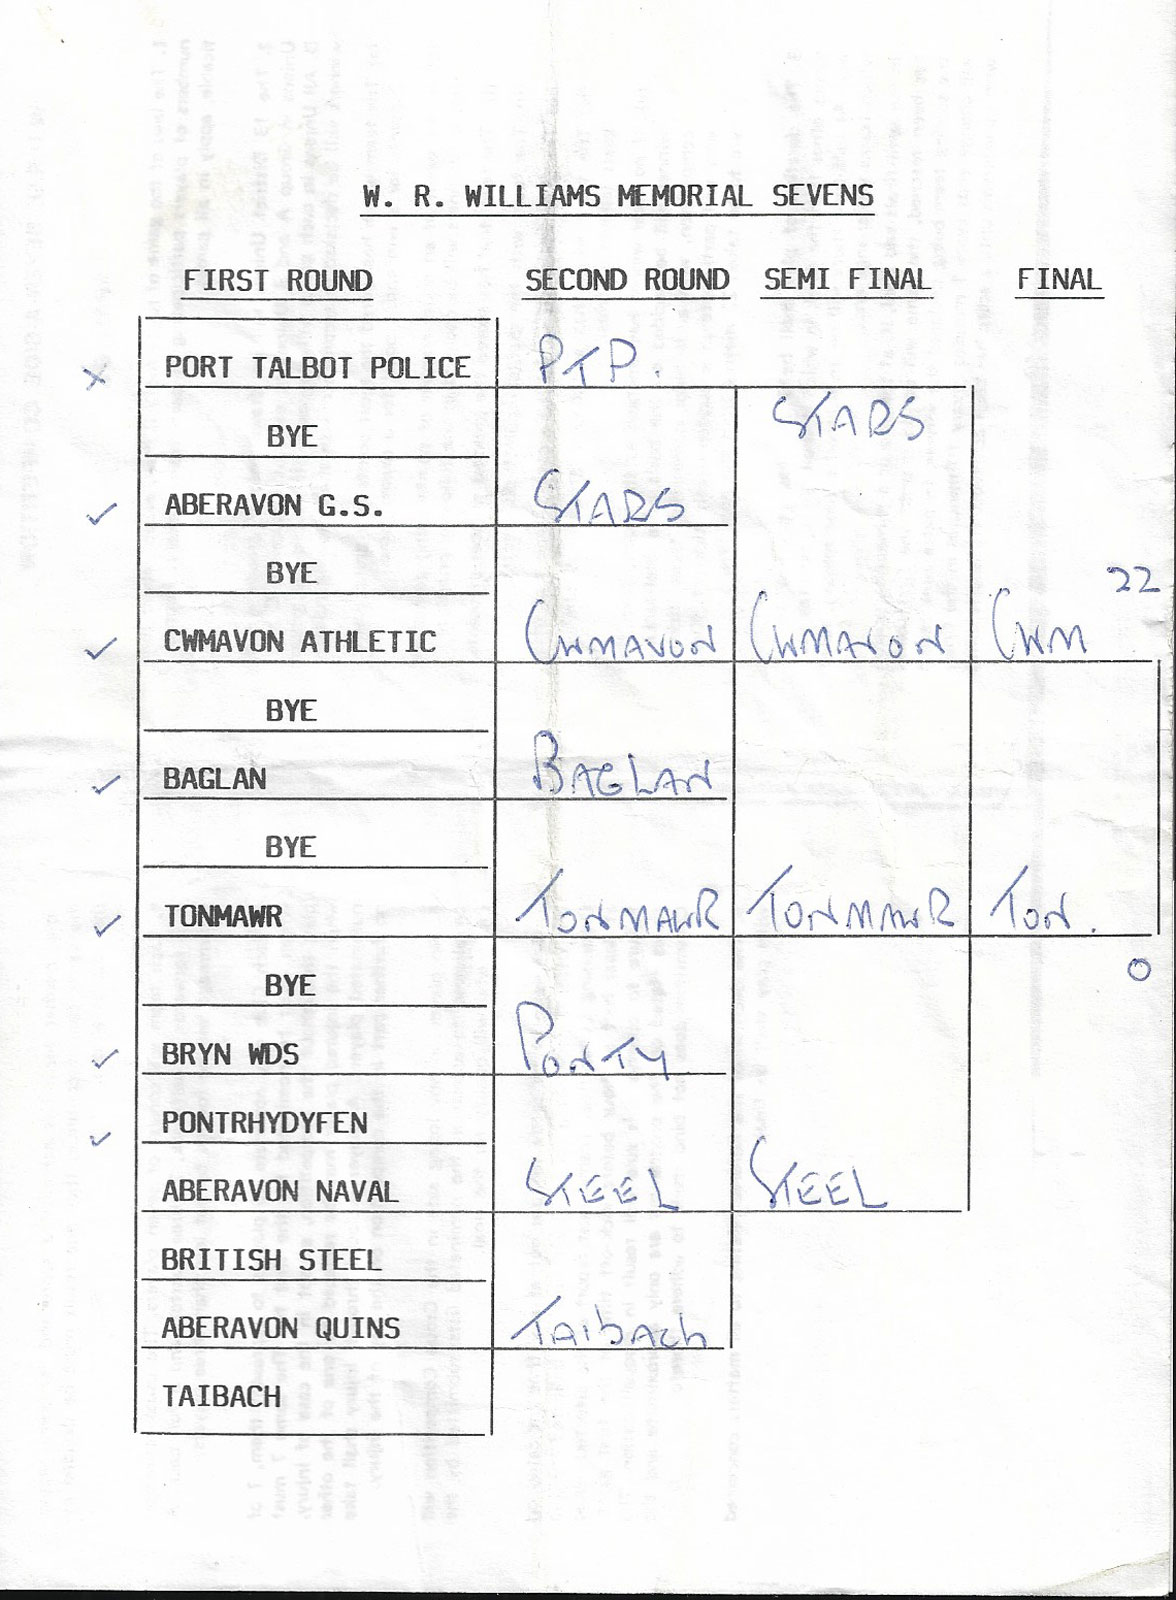 W. R. WILLIAMS MEMORIAL SEVENS
FIRST ROUND SECOND ROUND SEMI FINAL FINAL
PORT TALBOT POLICE PTP.
BYE STARS
ABERAVON G.S. STARS
BYE 22
CWMAVON ATHLETIC CWMAVON CWMAVON CWM
BYE
BAGLAN BAGLAN
BYE
TONMAWR TONMAWR TONMAWR TON.
BYE 0
BRYN WDS PONTY
PONTRHYDYFEN
ABERAVON NAVAL STEEL STEEL
BRITISH STEEL
ABERAVON QUINS TAibACh
TAIBACH